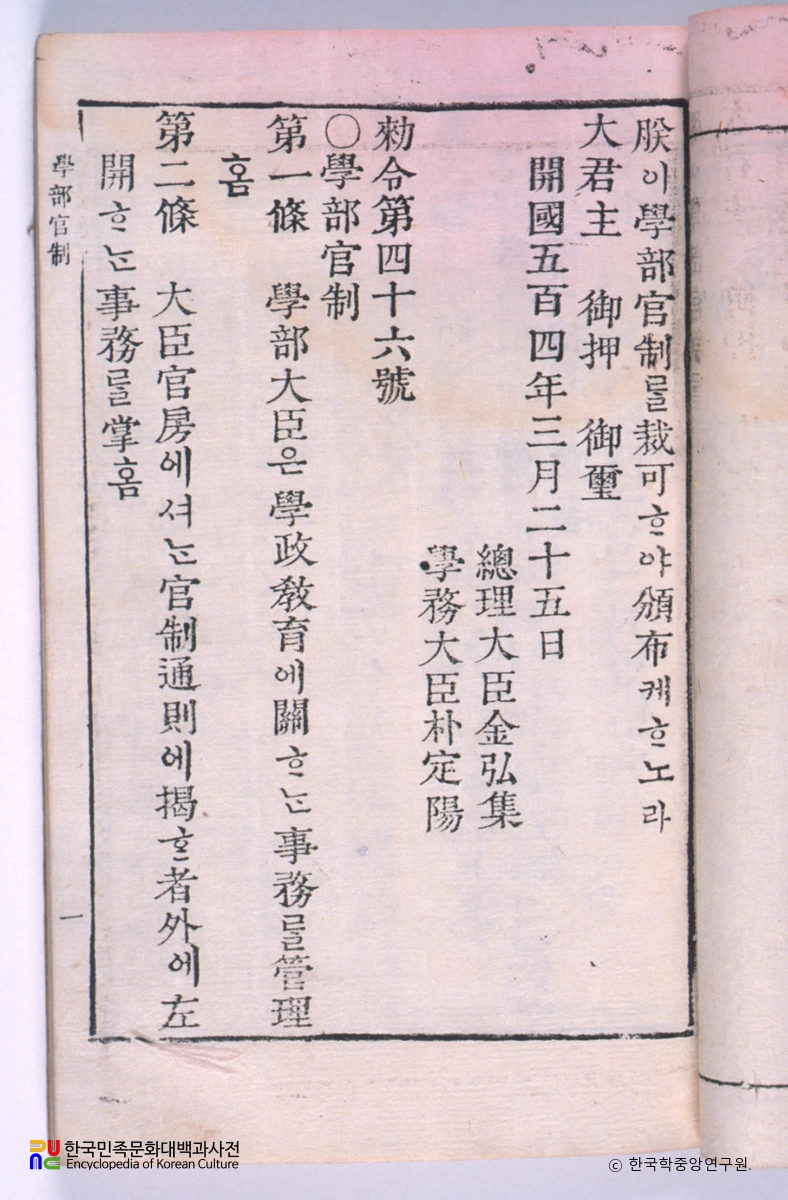 朕이學部官制를裁可ᄒᆞ야頒布케ᄒᆞ노라
大君主 御押 御璽
開國五百四年三月二十五日
總理大臣金弘集
學務大臣朴定陽
勅令第四十六號
○學部官制
第一條 學部大臣은學政敎育에關ᄒᆞᄂᆞᆫ事務를管理
홈
第二條 大臣官房에셔ᄂᆞᆫ官制通則에揭ᄒᆞᆫ者外에左
開ᄒᆞᄂᆞᆫ事務를掌홈
學部官制
一
한국민족문화대백과사전
Encyclopedia of Korean Culture
ⓒ 한국학중앙연구원.